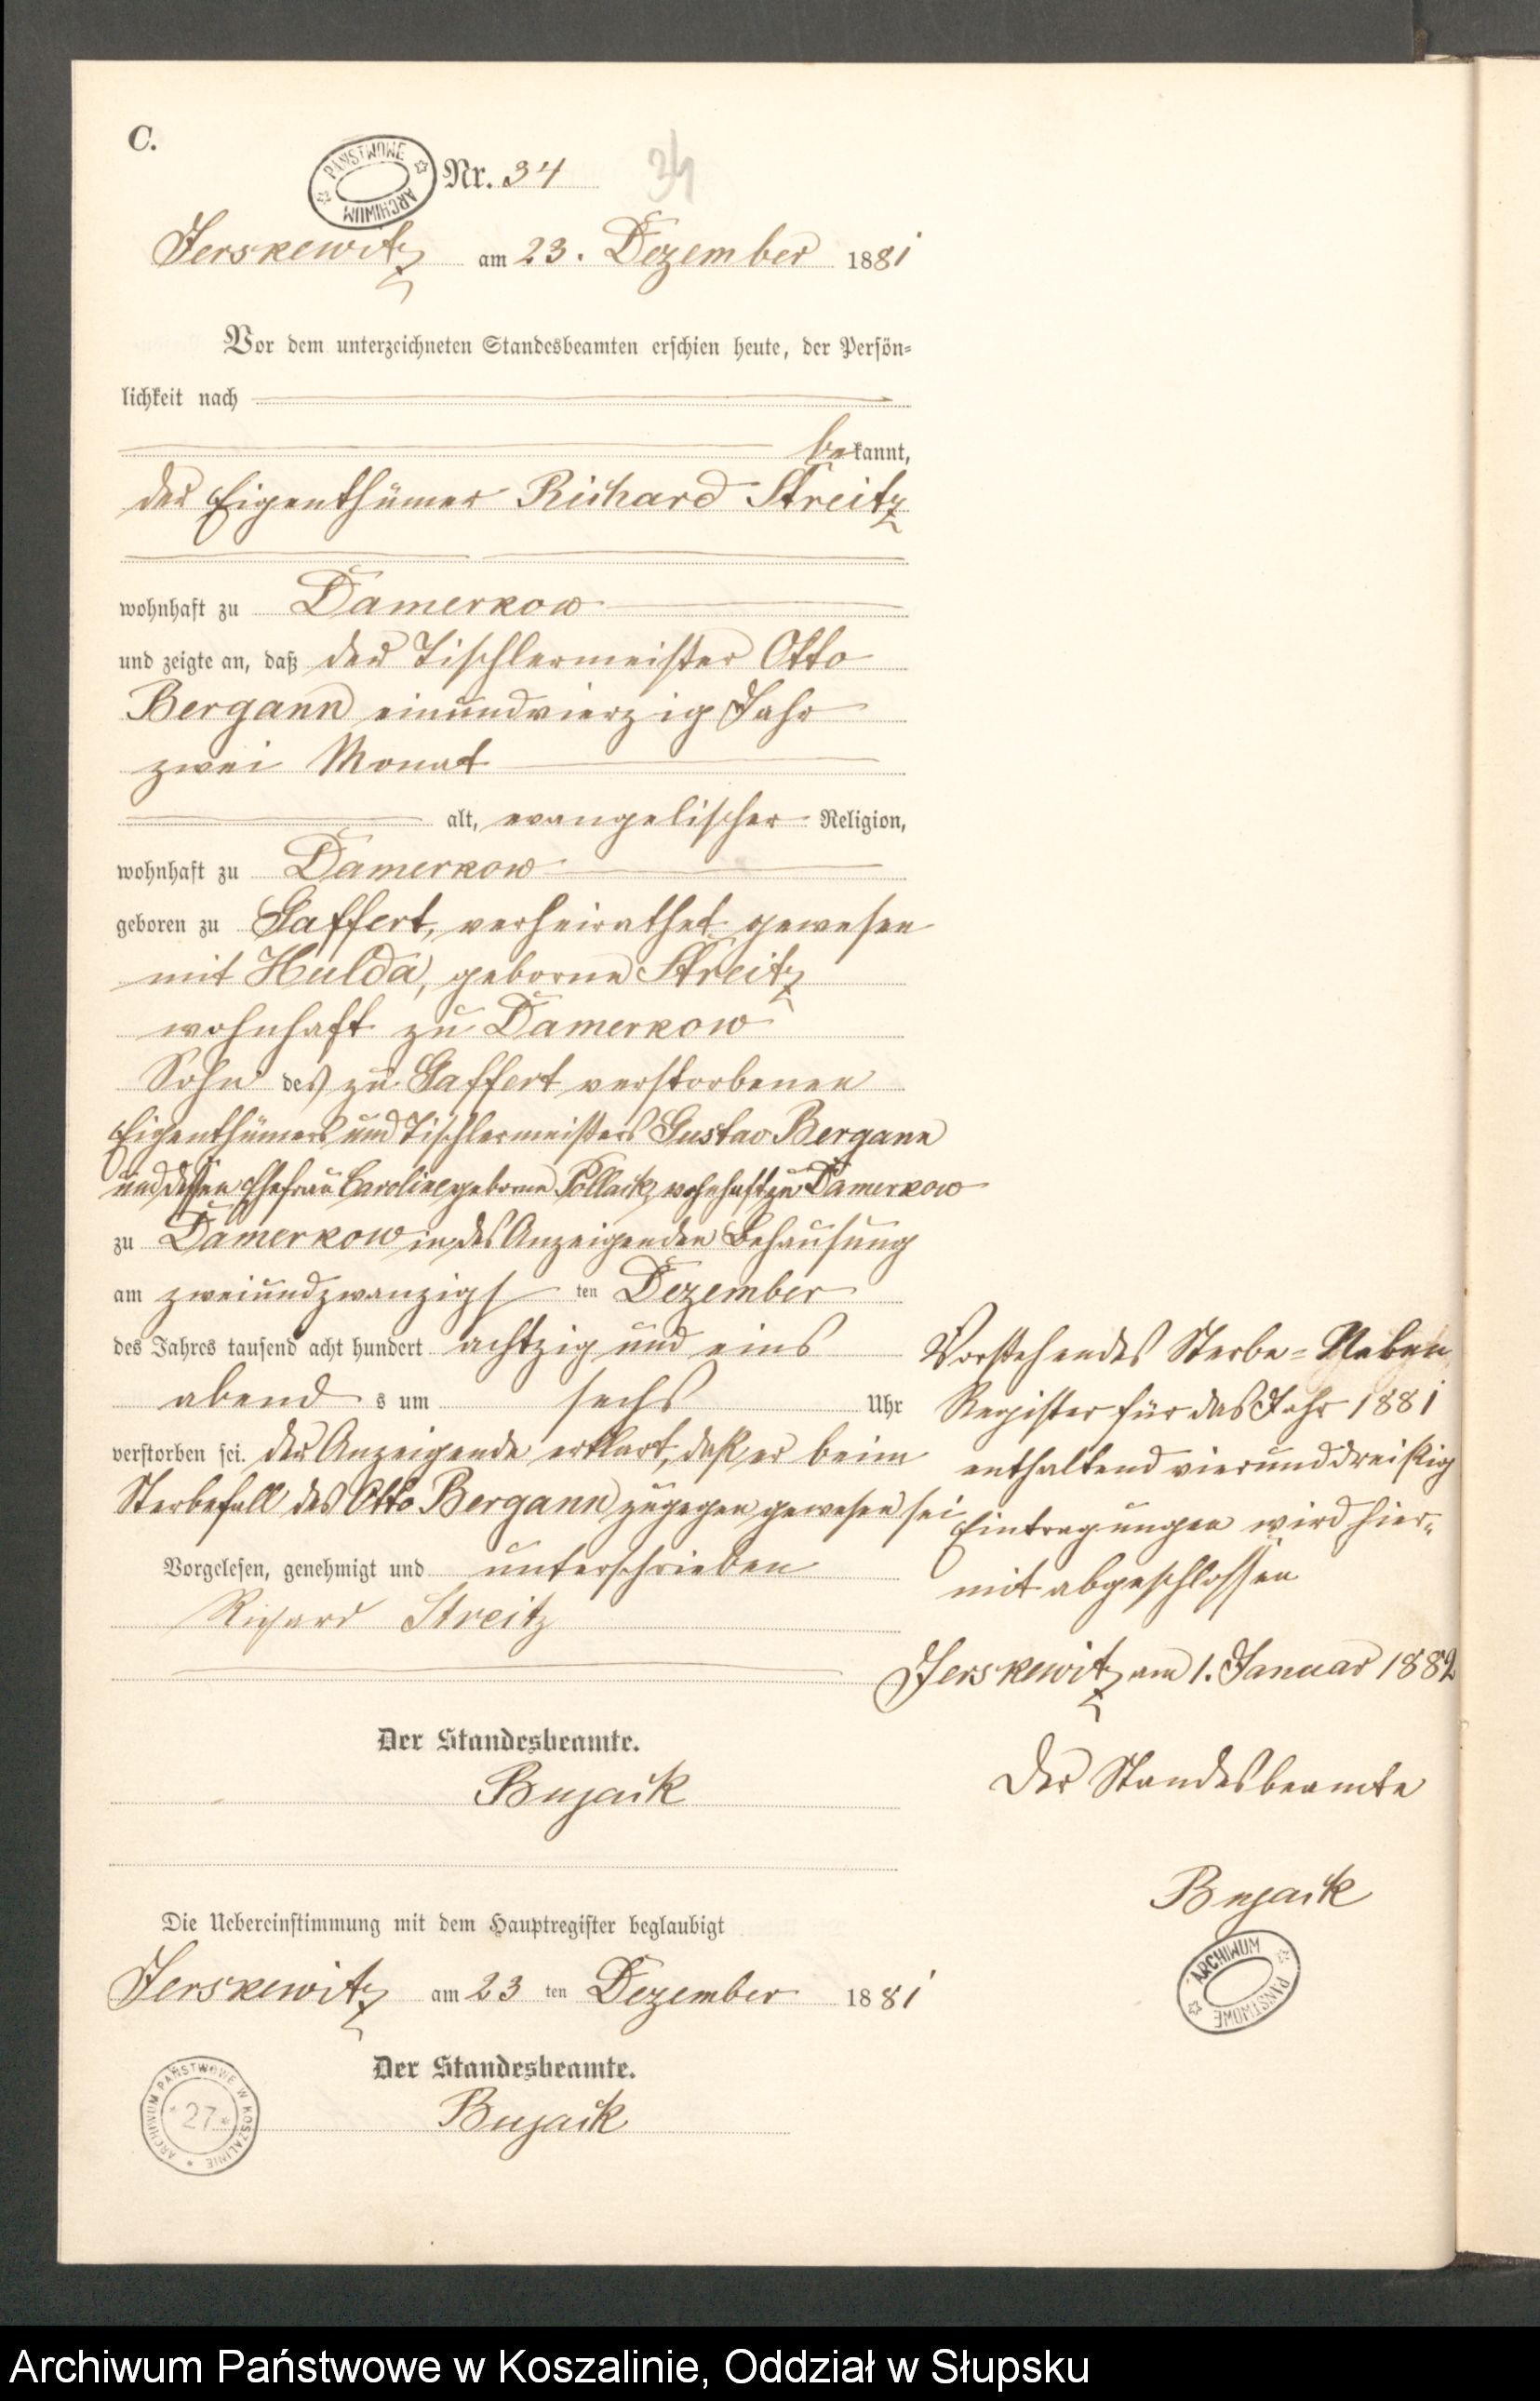 C.
PAŃSTWOWE ARCHIWUM
Nr. 34
34
Jerskewitz am 23. Dezember 1881
Vor dem unterzeichneten Standesbeamten erschien heute, der Persön-
lichkeit nach
bekannt,
der Eigenthümer Richard Streitz
wohnhaft zu Damerkow
und zeigte an, daß der Tischlermeister Otto
Bergann einundvierzig Jahr
zwei Monat
alt, evangelischer Religion,
wohnhaft zu Damerkow
geboren zu Gaffert, verheirathet gewesen
mit Hulda, geborne Streitz
wohnhaft zu Damerkow
Sohn des zu Gaffert verstorbenen
Eigenthümers und Tischlermeisters Gustav Bergann
und dessen Ehefrau Caroline geborne Pollack, wohnhaft zu Damerkow
zu Damerkow in des Anzeigenden Behausung
am zweiundzwanzigs ten Dezember
des Jahres tausend acht hundert achtzig und eins
abend s um sechs Uhr
verstorben sei. der Anzeigende erklärt, daß er beim
Sterbefall des Otto Bergann zugegen gewesen sei
Vorgelesen, genehmigt und unterschrieben
Richard Streitz
Der Standesbeamte.
Bujack
Die Uebereinstimmung mit dem Hauptregister beglaubigt
Jerskewitz am 23 ten Dezember 1881
Der Standesbeamte.
Bujack
ARCHIWUM PAŃSTWOWE W KOSZALINIE
27
Vorstehendes Sterbe-Neben
Register für das Jahr 1881
enthaltend vierunddreißig
Eintragungen wird hier-
mit abgeschlossen
Jerskewitz am 1. Januar 1882
Der Standesbeamte
Bujack
ARCHIWUM PAŃSTWOWE
Archiwum Państwowe w Koszalinie, Oddział w Słupsku